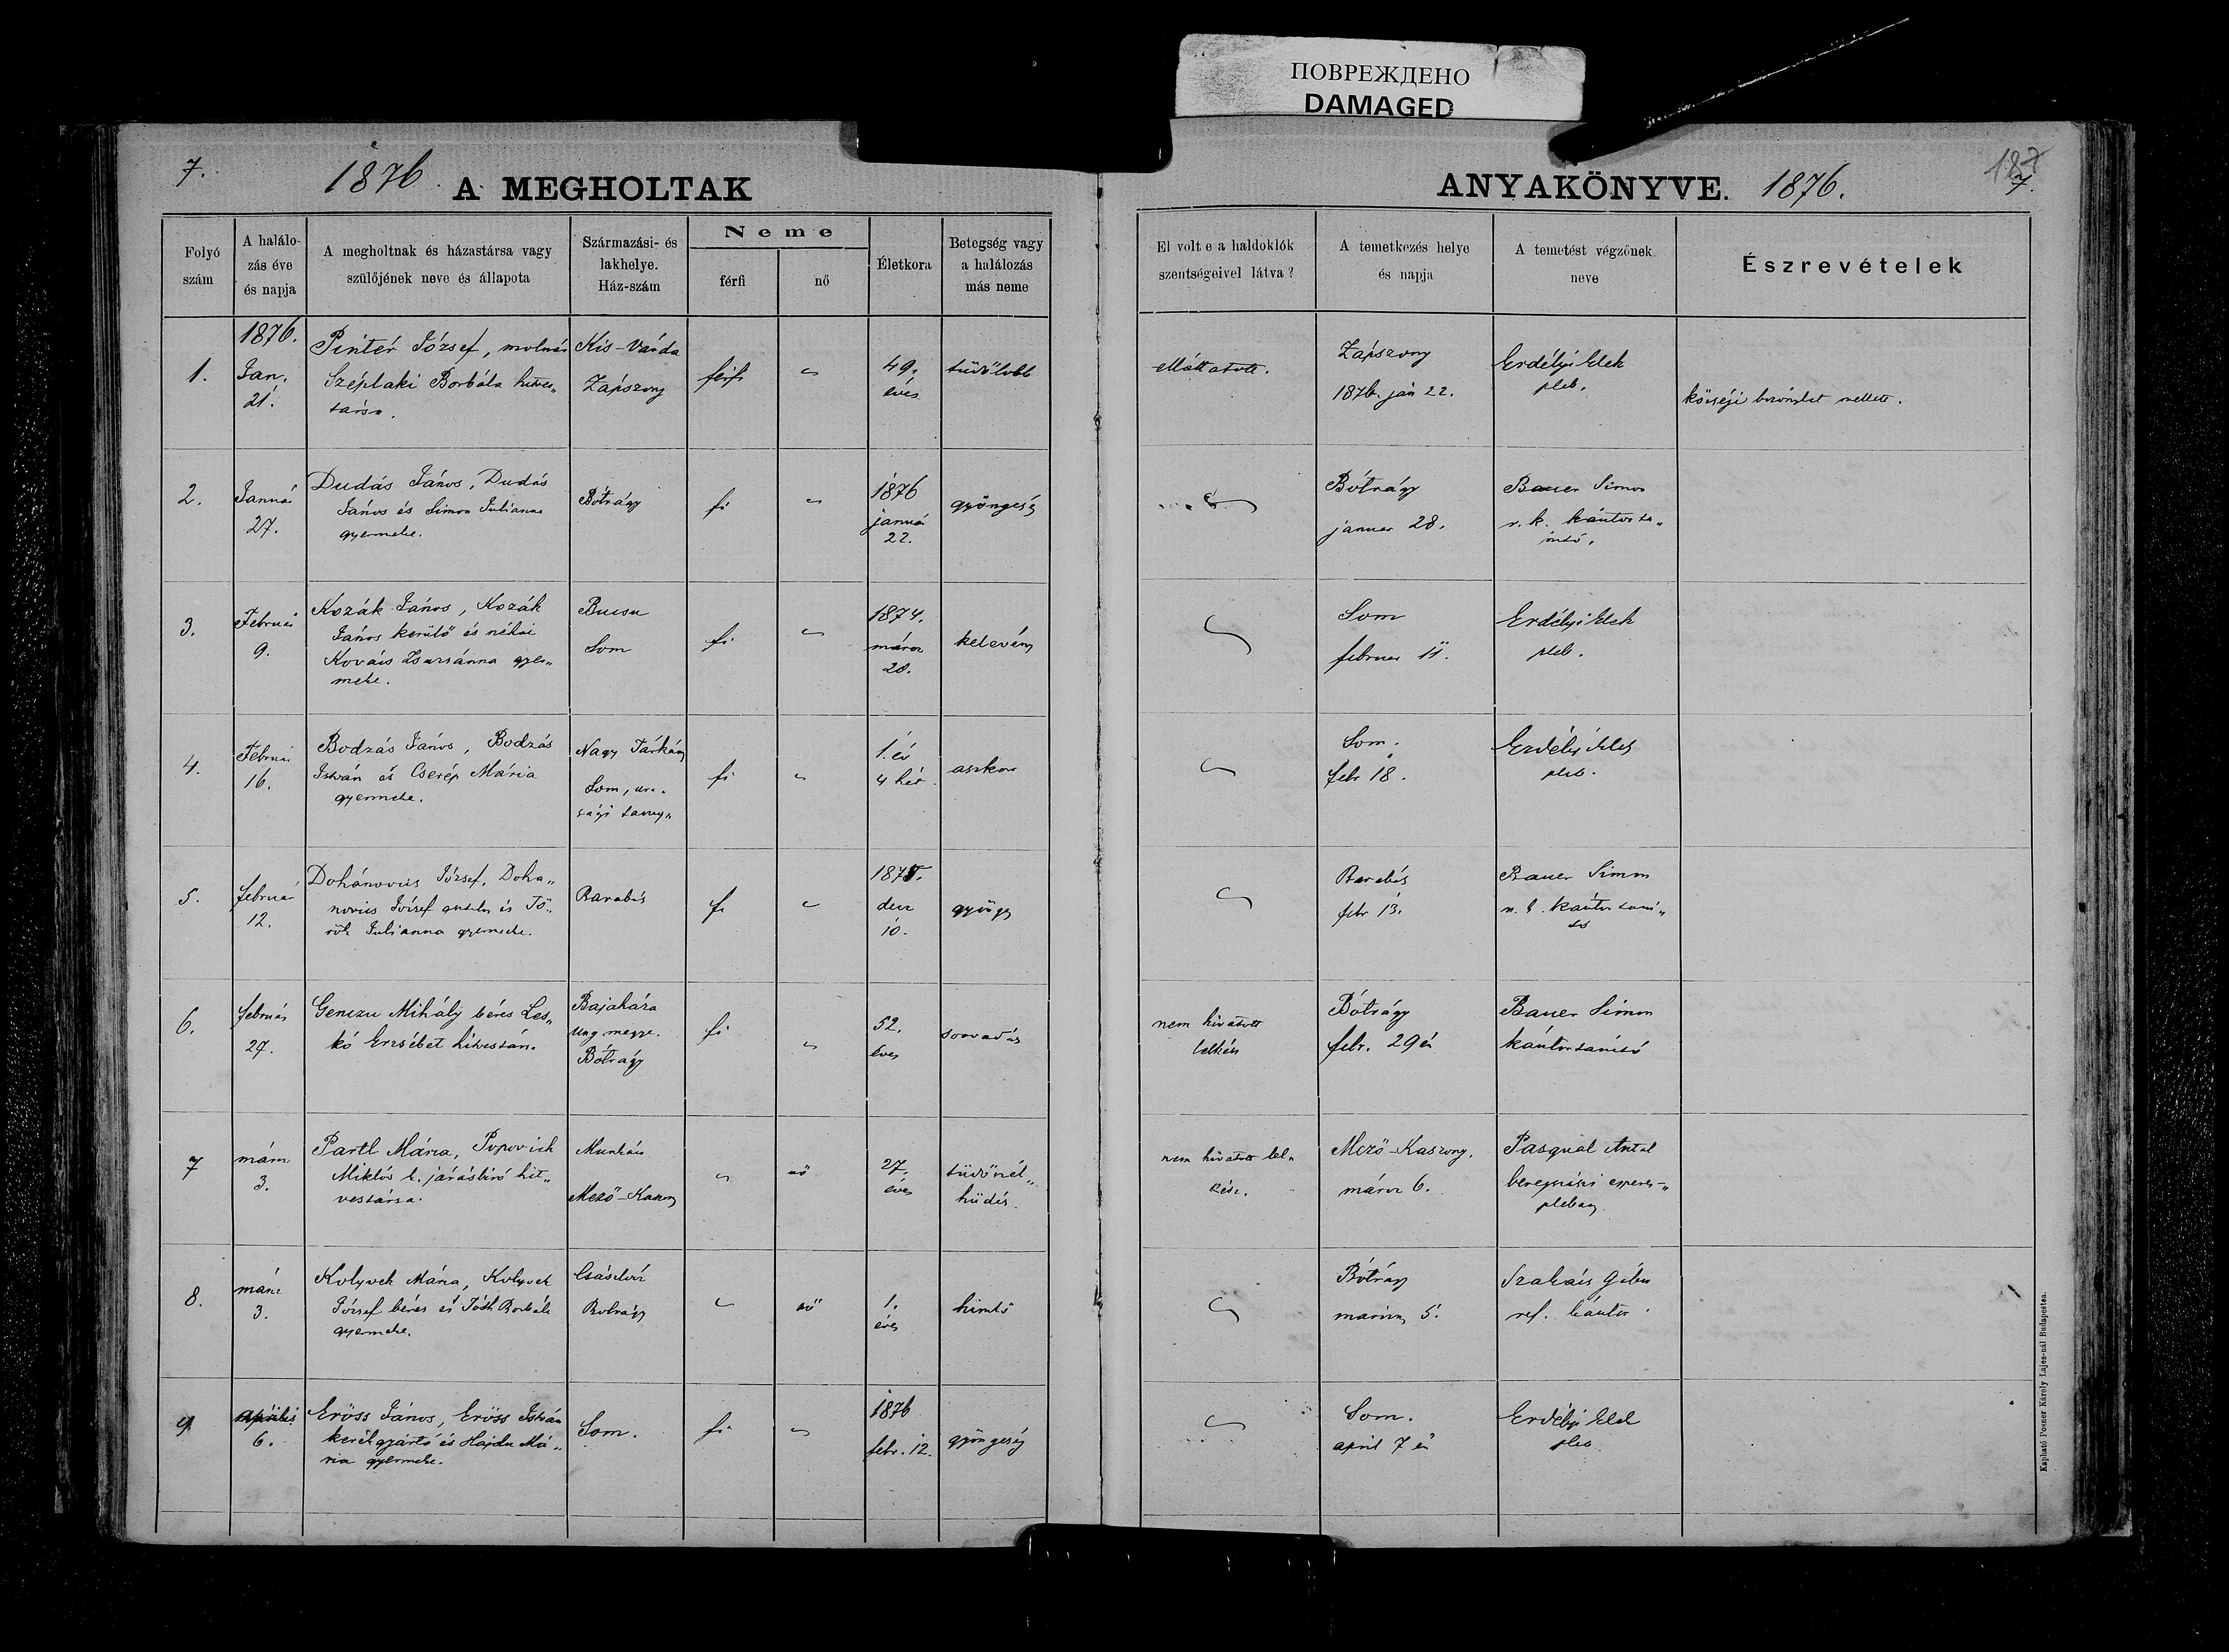 ПОВРЕЖДЕНО
DAMAGED
7.
1876.
A MEGHOLTAK
ANYAKÖNYVE.
1876.
187
7.
Folyó szám
A halálo-zás éve és napja
A megholtnak és házastársa vagy szülőjének neve és állapota
Származási- és lakhelye. Ház-szám
Neme
férfi
nő
Életkora
Betegség vagy a halálozás más neme
El volt e a haldoklók szentségeivel látva?
A temetkezés helye és napja
A temetést végzőnek neve
Észrevételek
1.
1876.
Jan.
21.
Pintér József, molnár
Széplaki Borbála hitves„
társa.
Kis-Várda
Zápszony
férfi
49.
éves
tüdőlobb
elláttatott.
Zápszony
1876. ján 22.
Erdélyi Elek
pleb.
községi bizonylat mellett.
2.
Januá
27.
Dudás János, Dudás
János és Simon Julianna
gyermeke.
Bótrágy
fi
1876
januá
22.
gyöngeség
Bótrágy
januar 28.
Bauer Simon
r. k. kántorta„
nító.
3.
Februá
9.
Kozák János, Kozák
János kerülő és néhai
Kovács Zsuzsánna gyer„
meke.
Bucsu
Som
fi
1874.
márcz
20.
kelevény
Som
februar 11.
Erdélyi Elek
pleb.
4.
Februá
16.
Bodzás János, Bodzás
István és Cserép Mária
gyermeke.
Nagy Tárkány
Som, ura„
sági tanya
fi
1. év
4 hét
aszkór
Som.
febr 18.
Erdélyi Elek
pleb.
5.
februá
12.
Dohánovics József, Doha„
novics József és Tö„
rök Julianna gyermeke.
Barabás
fi
1875.
decz
10.
gyönge
Barabás
febr 13.
Bauer Simon
kántor taní„
tó
6.
februá
27.
Genczu Mihály béres Les„
kó Erzsébet hitvestárs
Bajaháza
Ung megye.
Bótrágy
fi
52.
éves
sorvadás
nem hivatott
lelkész
Bótrágy
febr. 29én
Bauer Simon
kántortanító
7
márcz
3.
Partl Mária, Popovich
Miklós k. járásbiró hit„
vestársa.
Munkács
Mező-Kaszony
nő
27.
éves
tüdővél„
hüdés.
nem hivatott lel„
kész.
Mező-Kaszony.
márcz 6.
Pasquál Antal
beregszászi esperes-„
plebány
8.
márcz
3.
Kolyvek Mária, Kolyvek
József béres és Tóth Borbála
gyermeke.
Császlócz
Botrágy
nő
1.
éves
himlő
Bótrágy
martius 5.
Szakács Gábor
ref. kántor
9
április
6.
Erőss János, Erőss István
kerékgyártó és Hajdu Má„
ria gyermeke.
Som.
fi
1876
febr. 12.
gyöngeség
Som.
april 7én
Erdélyi Elek
pleb
Kapható Posner Károly Lajos-nál Budapesten.